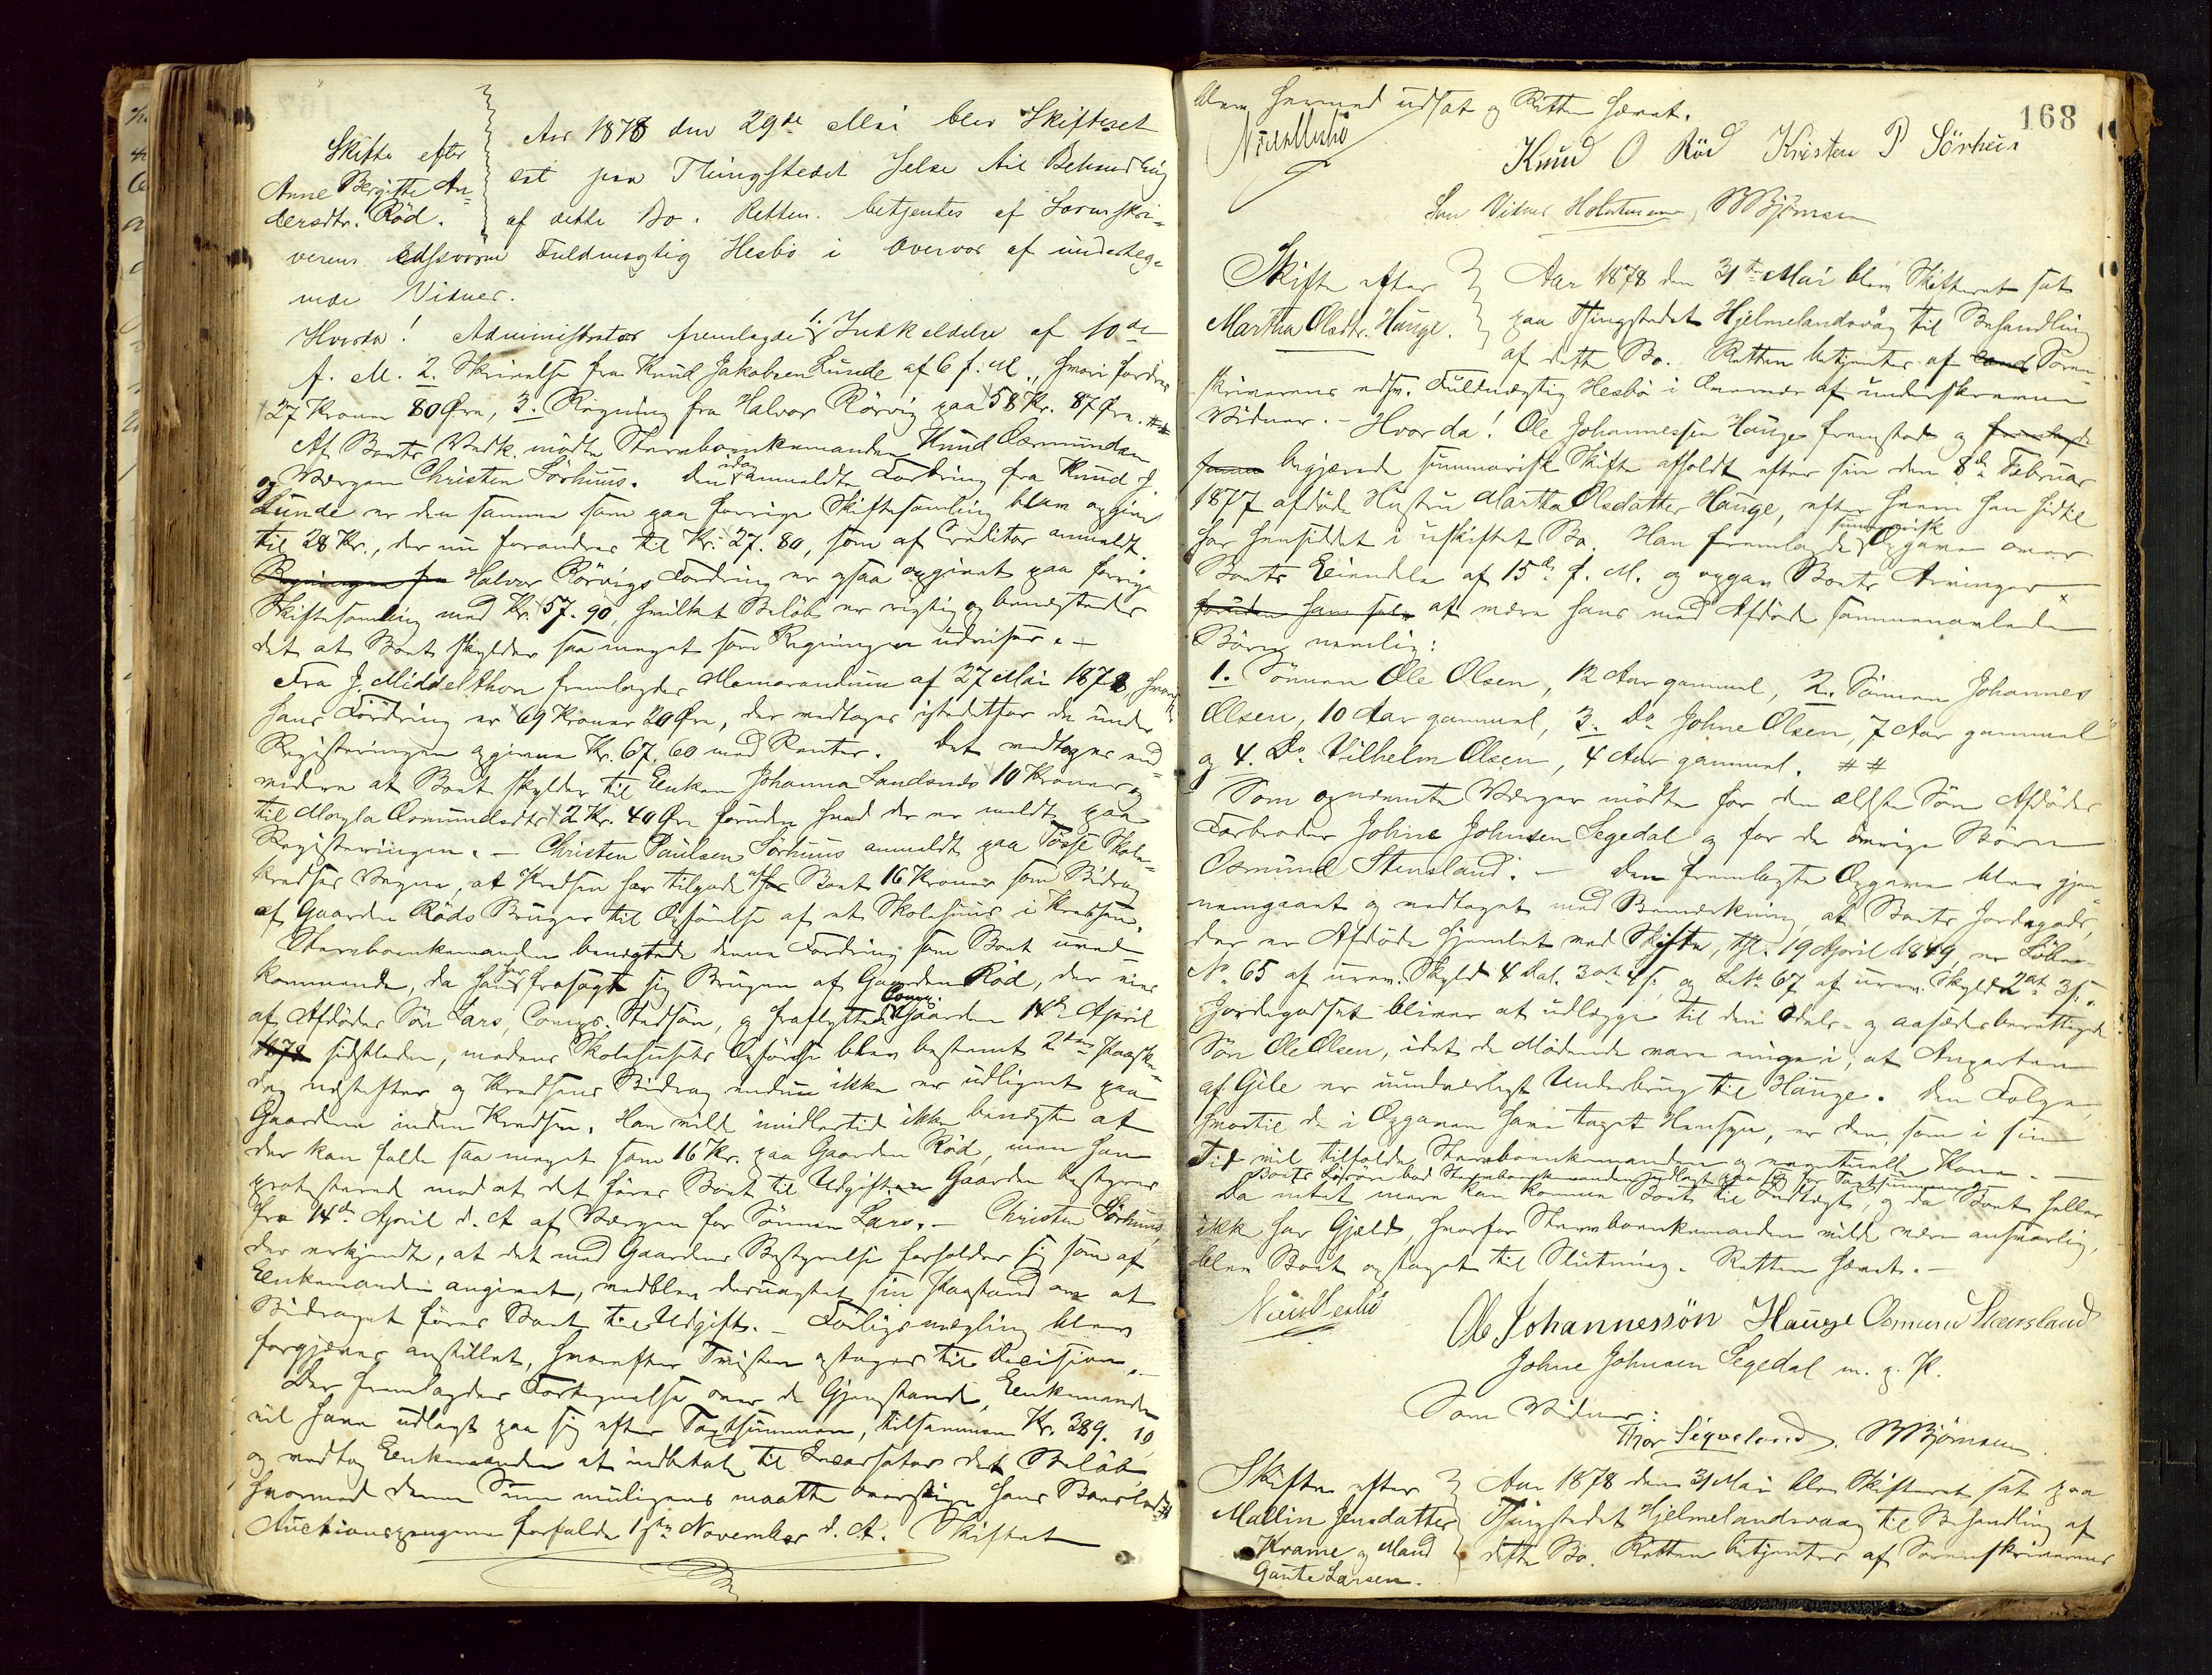 Skifte efter
Anne Bergitte An-
dersdtr. Röd.
Aar 1878 den 29de Mai blev Skifteret
sat paa Thingstedet Jelse til Behandling
af dette Bo. Retten betjentes af Sorenskri-
verens edsvorne Fuldmægtig Hesbö i Overvær af underteg-
nede Vidner.
Hvorda! Administrator fremlagde 1. Indkaldelse af 10de
f. M. 2. Skrivelse fra Knud Jakobsen Lunde af 6 f. M., hvori fordres
27 Kroner 80 Øre, 3. Regning fra Halvor Rörvig paa 58 Kr. 87 Øre. ##
Af Boets Vedk. mödte Stervboenkemanden Knud Osmundsen
og Værgen Christen Sörhuus. Den idag anmeldte Fordring fra Knud J.
Lunde er den samme som paa forrige Skiftesamling blev opgivet
til 28 Kr., der nu forandres til Kr. 27.80, som af Creditor anmeldt.
Regningen fra Halvor Rörvigs Fordring er ogsaa opgivet paa forrige
Skiftesamling med Kr. 57.90, hvilket Belöb er rigtig og benegtedes
det at Boet skylder saa meget som Regningen udviser. –
Fra J. Middelthon fremlagdes Memorandum af 27 Mai 1878, hvorefter
hans Fordring er 69 Kroner 20 Øre, der vedtages istedetfor de under
Registreringen opgivne Kr. 67.60 med Renter. Det vedtages end-
videre at Boet skylder til Enken Johanna Landsnes 10 Kroner og
til Magla Osmundsdtr 2 Kr. 40 Øre foruden hvad der er meldt paa
Registreringen. – Christen Paulsen Sörhuus anmeldte paa Fosse Skole-
kredses Vegne, at Kredsen har tilgode hos Boet 16 Kroner som Bidrag
af Gaarden Röds Bruger til Opförelse af et Skolehuus i Kredsen.
Stervboenkemanden benegtede denne Fordring som Boet uved-
kommende, da han har frasagt sig Brugen af Gaarden Röd, der eies
af Afdödes Sön Lars, Comps. Stedsön, og fraflyttede Comp. Gaarden 14de April
1878 sidstleden, medens Skolehusets Opförelse blev bestemt 2den Paaske-
dag næstefter og Kredsens Bidrag endnu ikke er udlignet paa
Gaardene inden Kredsen. Han vilde imidlertid ikke benegte at
der kan falde saa meget som 16 Kr. paa Gaarden Röd, men han
protesterede mod at det föres Boet til Udgift Gaarden bestyres
fra 14de April d. A. af Værgen for Sönnen Lars. – Christen Sörhuus,
der erkjendte, at det med Gaardens Bestyrelse forholder sig som af
Enkemanden angivet, vedblev desuagtet sin Paastand om at
Bidraget föres Boet til Udgift. – Forligsmægling blev
forgjæves anstillet, hvorefter Tvisten optages til Decision. –
Der fremlagdes Fortegnelse over de Gjenstande, Enkemanden
vil have udlagt paa sig efter Taxtsummen, tilsammen Kr. 389.10,
og vedtog Enkemanden at indbetale til Incassator det Belöb,
hvormed denne Sum muligens maatte overstige hans Boeslod. #
Auctionspengene forfalde 1ste November d. A. Skiftet
168
blev hermed udsat og Retten hævet.
Niels Hesbö
Knud O Röd Kristen P Sörhuus
Som Vidner Holstmann, B Björnsen
Skifte efter
Martha Olsdtr. Hauge.
Aar 1878 den 31te Mai blev Skifteret sat
paa Thingstedet Hjelmelandsvåg til Behandling
af dette Bo. Retten betjentes af Soren-
skriverens edsv. Fuldmægtig Hesbö i Overvær af underskrevne
Vidner. – Hvorda! Ole Johannessen Hauge fremstod og fremlagde
begjærede summarisk Skifte afholdt efter sin den 8de Februar
1877 afdöde Hustru Martha Olsdatter Hauge, efter hvem han hidtil
har hensiddet i uskiftet Bo. Han fremlagde summarisk Opgave over
Boets Eiendele af 15de f. M. og opgav Boets Arvinger
foruden ham selv at være hans med Afdöde sammenavlede
Börn nemlig:
1. Sönnen Ole Olsen, 12 Aar gammel, 2. Sönnen Johannes
Olsen, 10 Aar gammel, 3. Do. Johne Olsen, 7 Aar gammel
og 4. Do. Vilhelm Olsen, 4 Aar gammel. ##
Som opnævnte Værger mödte for den ældste Sön Afdödes
Farbroder Johne Johnsen Segedal og for de övrige Börn
Osmund Stensland. – Den fremlagte Opgave blev gjen-
nemgaaet og vedtaget med Bemærkning, at Boets Jordegods,
der er Afdöde hjemlet med Skifte, thl. 19 April 1849, er Löbe-
No. 65 af urev. Skyld 4 Dal. 3 ort 4 s. og L.No. 67 af urev. Skyld 2 ort 3 s.
Jordegodset bliver at udlægge til den Odels- og aasædesberettigede
Sön Ole Olsen, idet de Mödende vare enige i, at Anparten
af Gile er uundværligt Underbrug til Hauge. Den Folge,
hvortil de i Opgaven have taget Hensyn, er den, som i sin
Tid vil tilfalde Stervboenkemanden og eventuelle Kone. –
Boets Lösöre bad Stervboenkemanden udlagt paa sig for Taxtsummen
Da intet mere kan komme Boet til Indtægt, og da Boet heller
ikke har Gjæld, hvorfor Stervboenkemanden vilde være ansvarlig,
blev Boet optaget til Slutning. Retten hævet. –
Niels Hesbö
Ole Johannessön Hauge Osmund Stensland
Johne Johnsen Segedal m. p. P.
Som Vidner:
Thor Sigveland. B Björnsen.
Skifte efter
Mallin Jensdatter
Krame og Mand
Gaute Larsen.
Aar 1878 den 31 Mai blev Skifteret sat paa
Thingstedet Hjelmelandsvaag til Behandling af
dette Bo. Retten betjentes af Sorenskriverens